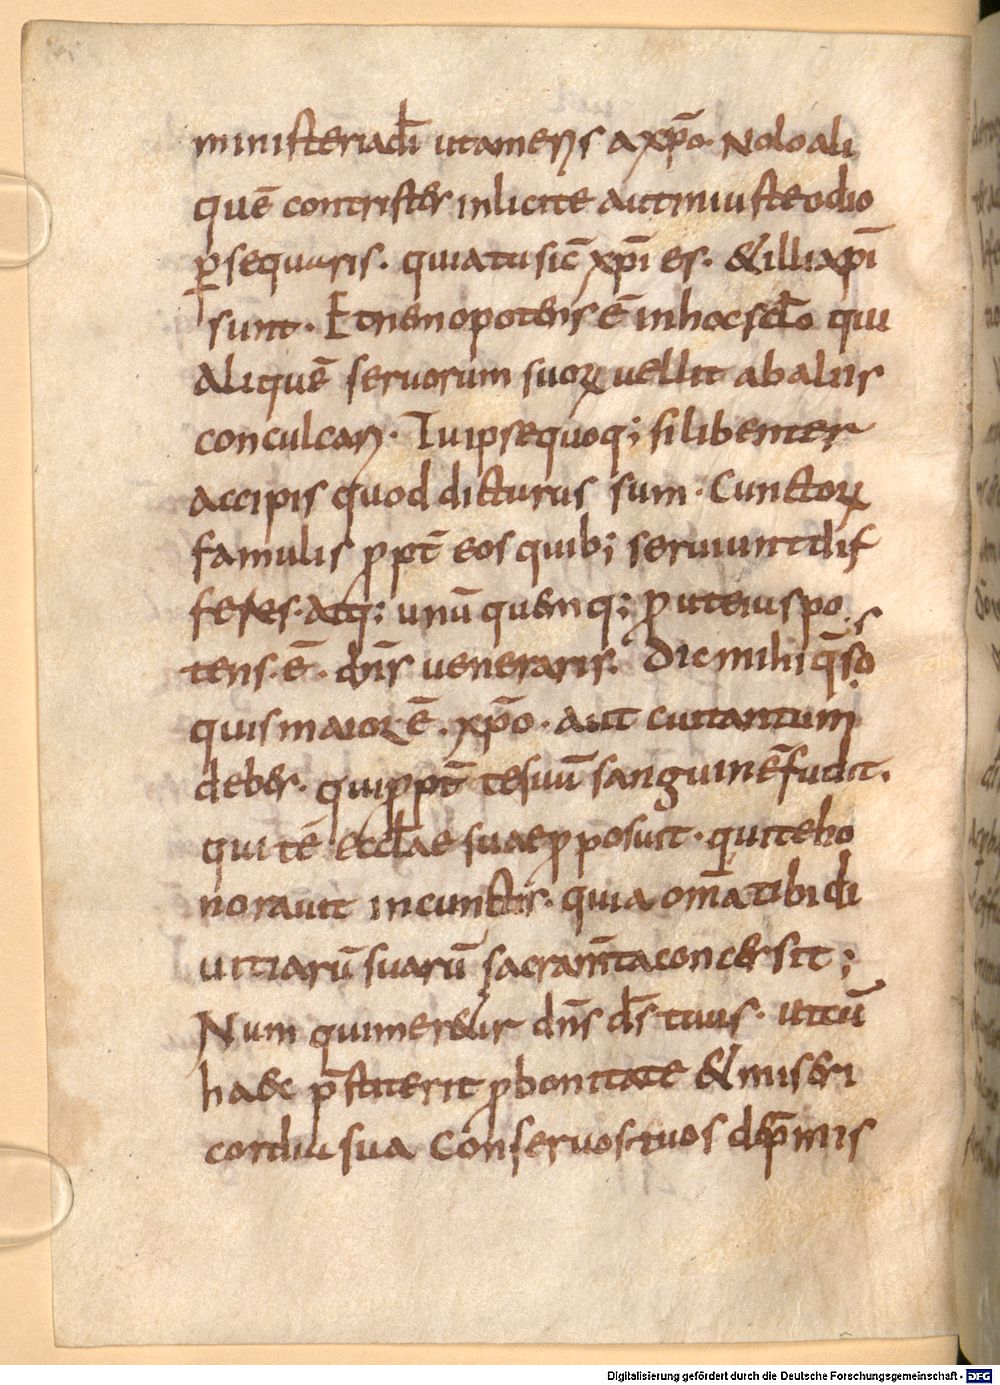 ministeria dī ut ameris a xp̄o. Nolo ali
quē contristes inlicite aut iniuste odio
ꝑsequaris. quia tu sic̄ xp̄i es. & illi xp̄i
sunt. Et nemo potens ē in hoc sc̄lo qui
aliquē servorum suoꝝ vellit ab aliis
conculcari. Tu ipse quoq; si libenter
accipis quod dicturus sum. Cunctoꝝ
famulis ꝓpt̄ eos quib; serviunt dif
feres. Atq; unū quemq; ꝓut eius po
tens. ē. dn̄s veneraris. Dic mihi q̄so
quis maior ē. xp̄o. aut cui tantum
debes. qui ꝓpt̄ te suū sanguinē fudit.
qui tē eccl̄ae suae ꝓposuit. qui te ho
noravit in cunctis. quia om̄a tibi di
vitiarū suarū sacram̄ta concessit;
Num quimereur dn̄s ds̄ tuus. ut cū
haec p̄stiterit ꝓ bonitate & miseri
cordia sua Conservos tuos dep̄mis
Digitalisierung gefördert durch die Deutsche Forschungsgemeinschaft - DFG